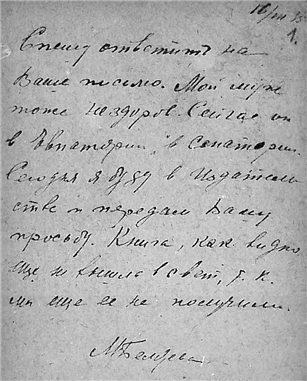 1.
Спешу ответить на
Ваше письмо. Мой муж
тоже нездоров. Сейчас он
в Евпатории, в санатории.
Сегодня я буду в Издатель
стве и передам Вашу
просьбу. Книга, как видно,
еще не вышла в свет, т. к.
мы еще ее не получили.